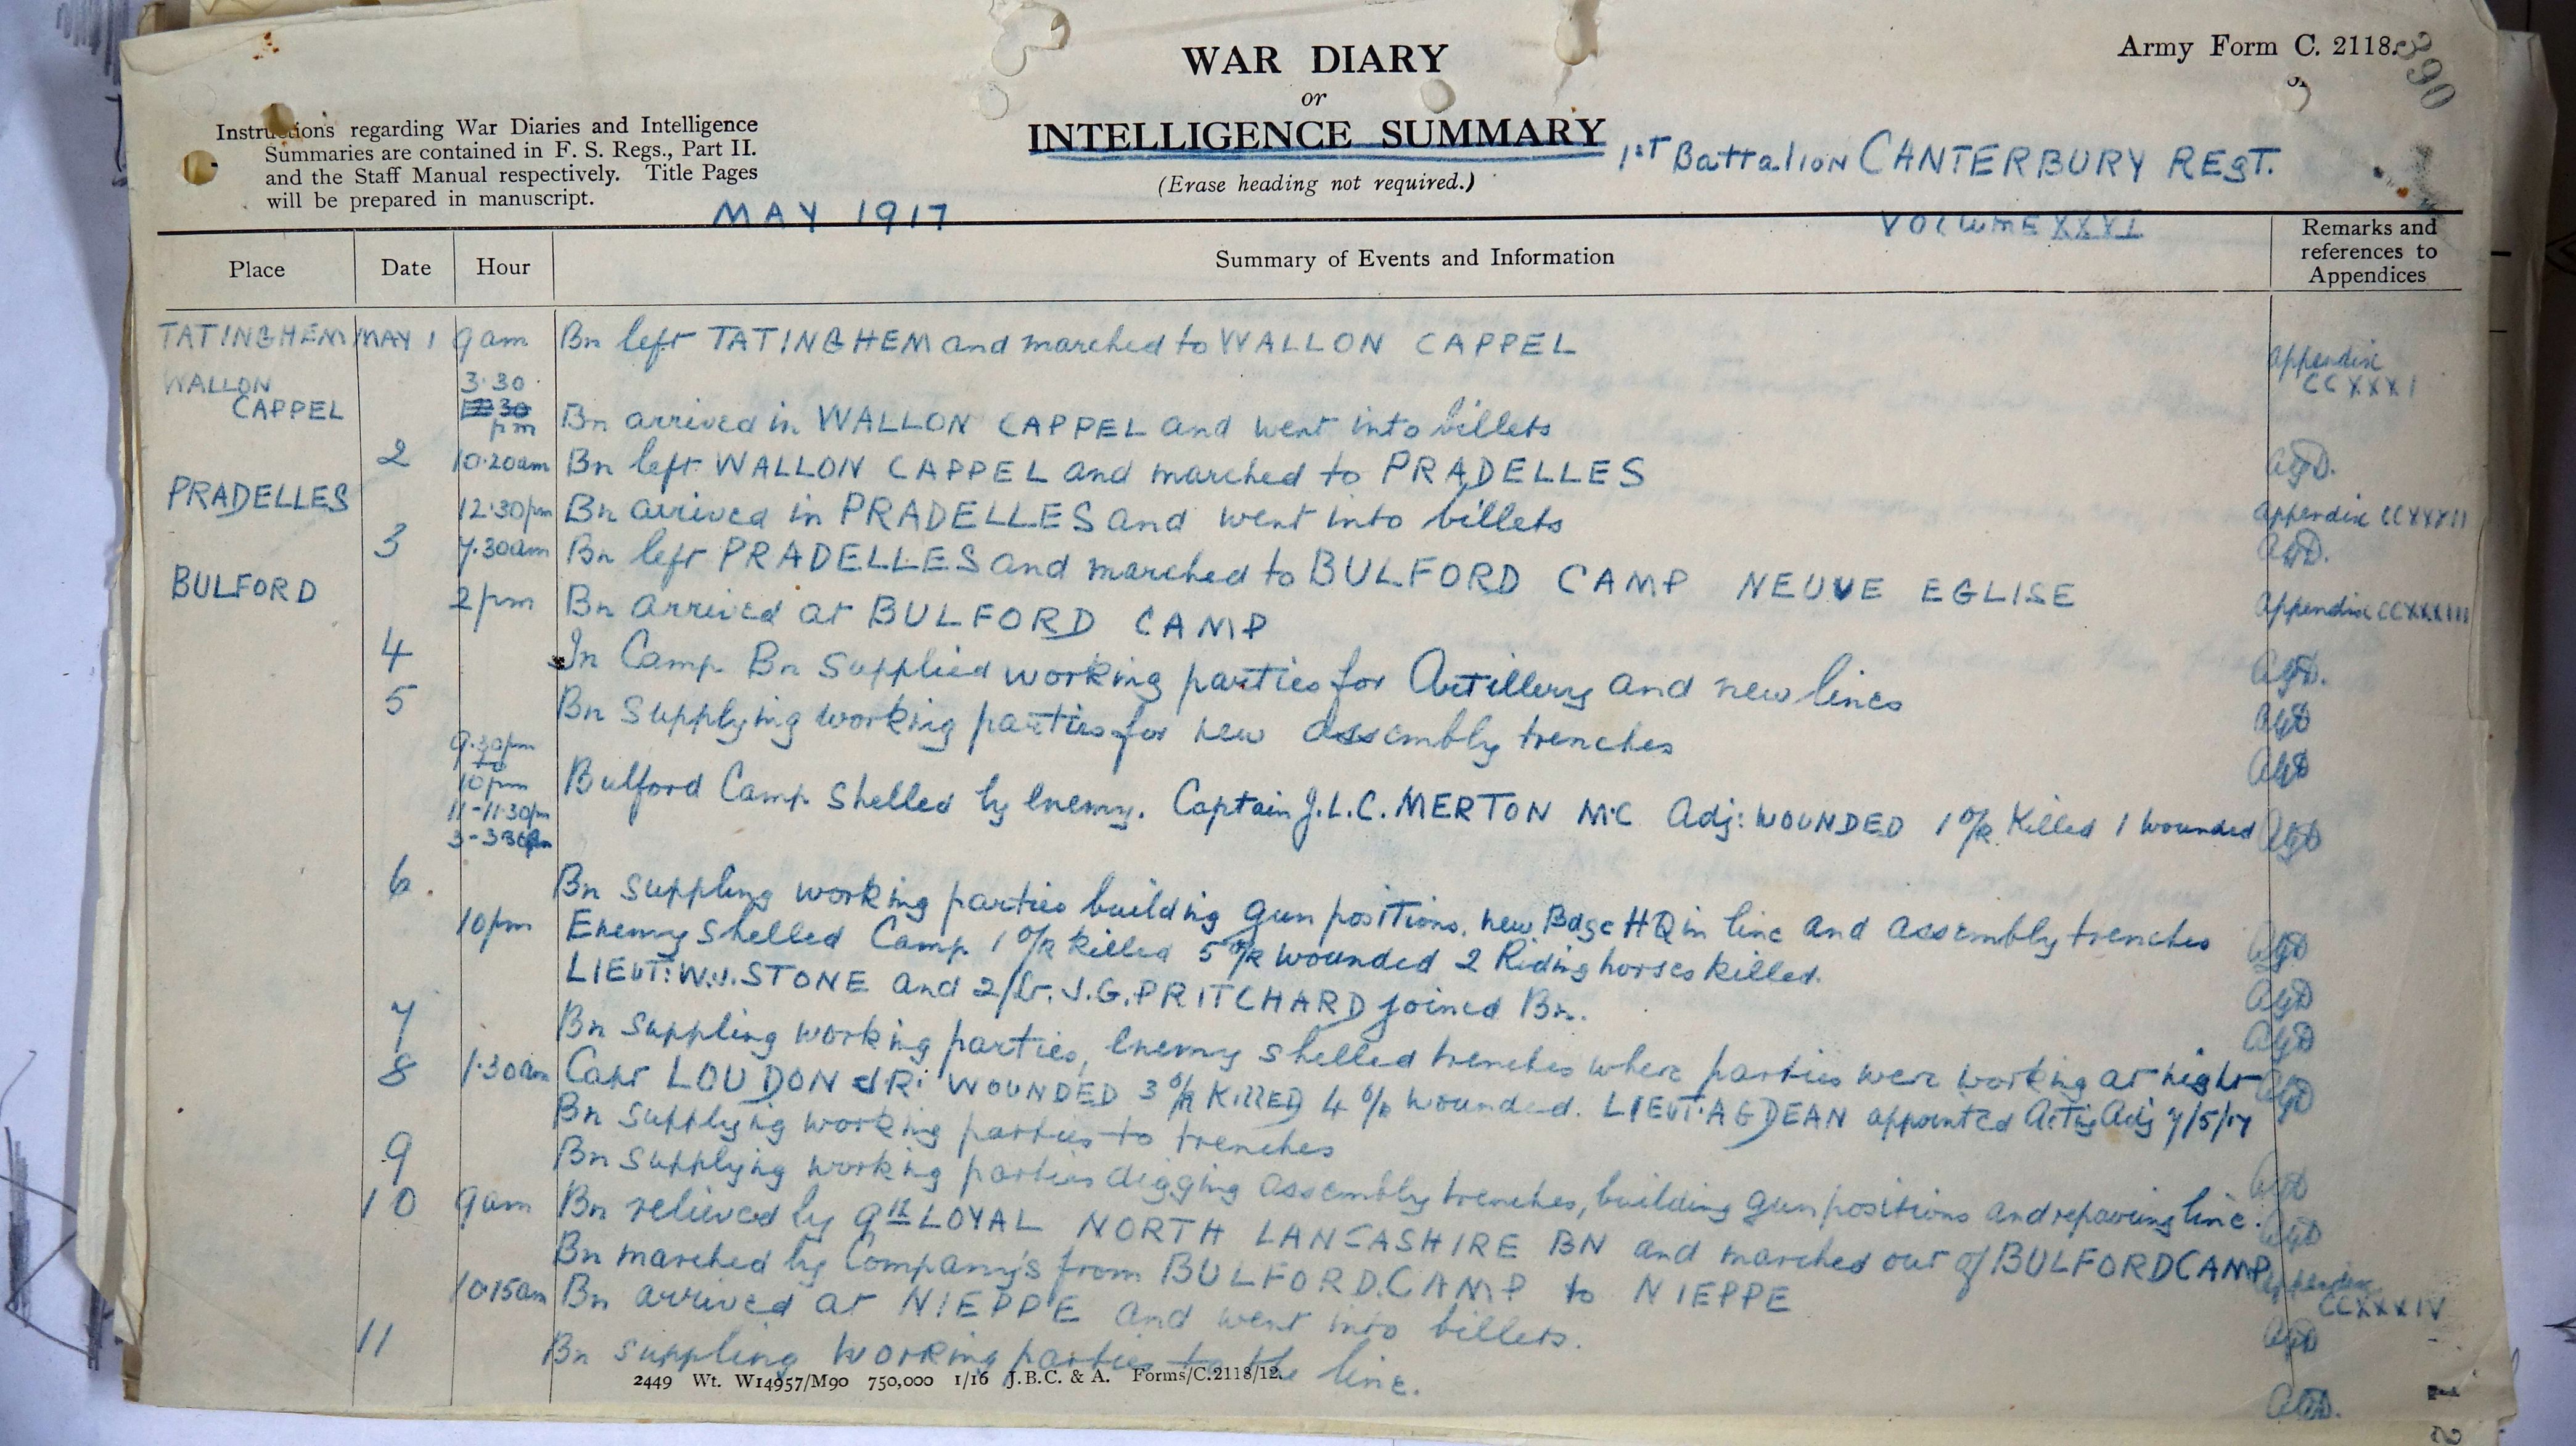 WAR DIARY
or
INTELLIGENCE SUMMARY
(Erase heading not required.)
Army Form C. 2118.
390
Instructions regarding War Diaries and Intelligence
Summaries are contained in F. S. Regs., Part II.
and the Staff Manual respectively. Title Pages
will be prepared in manuscript.
MAY 1917
1ST Battalion CANTERBURY REGT.
VOLUME XXVI
Place Date Hour Summary of Events and Information Remarks and references to Appendices
TATINGHEM MAY 1 9am Bn left TATINGHEM and marched to WALLON CAPPEL appendix CCXXXI
WALLON CAPPEL 3.30 pm Bn arrived in WALLON CAPPEL and went into billets
2 10.20am Bn left WALLON CAPPEL and marched to PRADELLES AGD.
PRADELLES 12.30pm Bn arrived in PRADELLES and went into billets appendix CCXXXII
3 7.30am Bn left PRADELLES and marched to BULFORD CAMP NEUVE EGLISE AGD.
BULFORD 2pm Bn arrived at BULFORD CAMP appendix CCXXXIII
4 In Camp Bn supplied working parties for Artillery and new lines AGD.
5 Bn supplying working parties for new assembly trenches AGD
9.30pm to 10pm AGD
11-11.30pm Bulford Camp shelled by enemy. Captain J.L.C. MERTON MC Adj: WOUNDED 1 O/R Killed 1 wounded AGD
3-3.30
6. Bn suppling working parties building gun positions, new Bdge HQ in line and assembly trenches AGD
10pm Enemy shelled Camp 1 O/R killed 5 O/R wounded 2 Riding horses killed. AGD
LIEUT: W.J. STONE and 2/Lt. J.G. PRITCHARD joined Bn. AGD
7 Bn suppling working parties, enemy shelled trenches where parties were working at night AGD
8 1.30am Capt LOUDON JR: WOUNDED 3 O/R KILLED 4 O/R wounded. LIEUT: A G DEAN appointed Actig Adj 7/5/17
Bn supplying working parties to trenches AGD
9 Bn supplying working parties digging assembly trenches, building gun positions and repairing line. AGD
10 9am Bn relieved by 9th LOYAL NORTH LANCASHIRE BN and marched out of BULFORD CAMP
Bn marched by Company's from BULFORD CAMP to NIEPPE appendix CCXXXIV
10.15am Bn arrived at NIEPPE and went into billets. AGD
11 Bn suppling working parties to the line. AGD.
2449 Wt. W14957/M90 750,000 1/16 J.B.C. & A. Forms/C.2118/12.